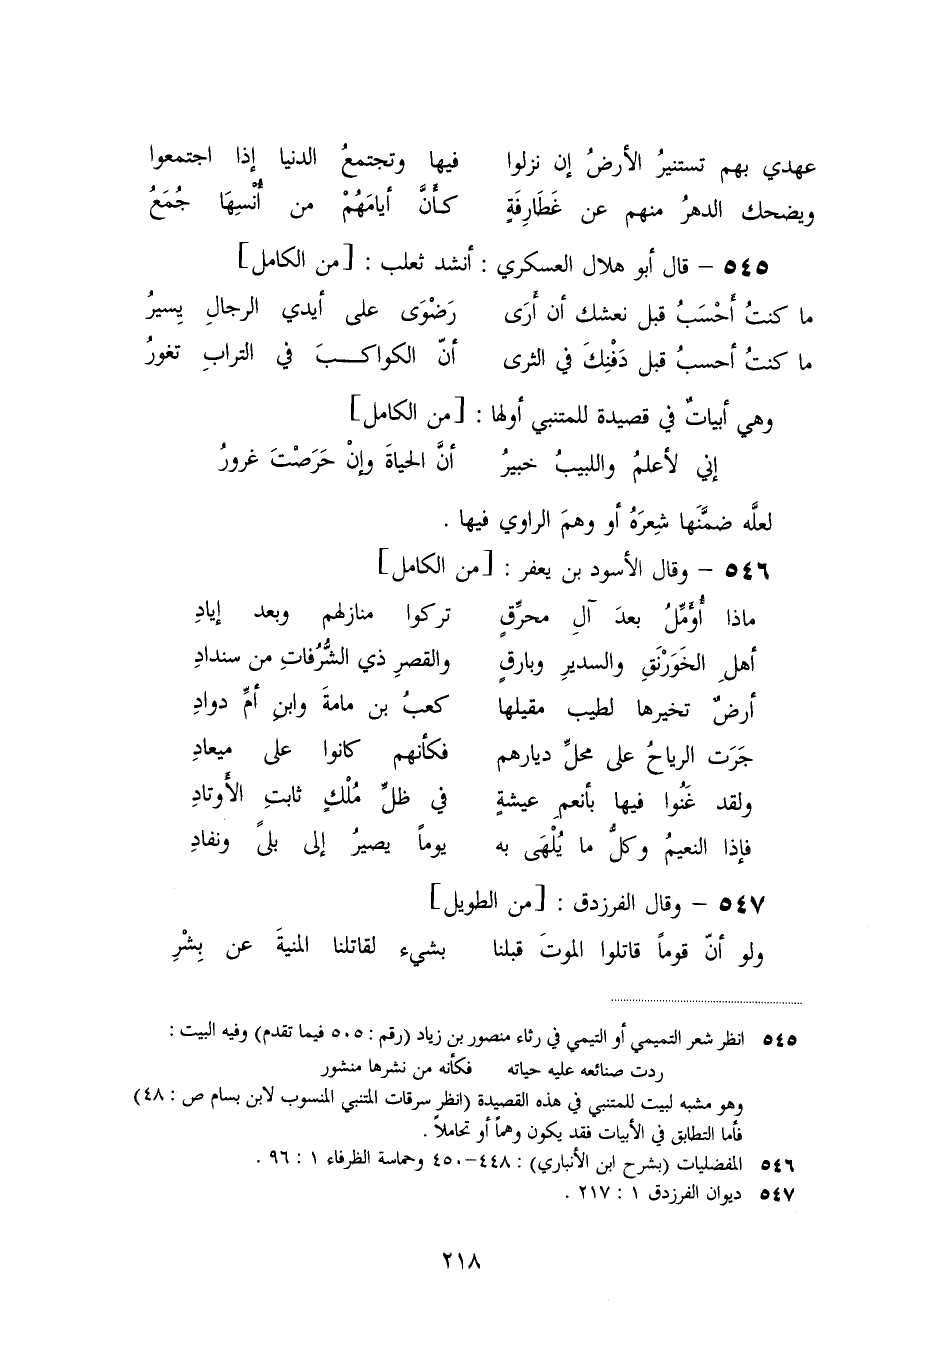 عهدي بهم تستنيرُ الأرضُ إن نزلوا فيها وتجتمعُ الدنيا إذا اجتمعوا
ويضحك الدهرُ منهم عن غَطَارِفَةٍ كأنَّ أيامَهُمْ من أُنْسِهَا جُمَعُ
٥٤٥ – قال أبو هلال العسكري : أنشد ثعلب : [من الكامل]
ما كنتُ أَحْسَبُ قبل نعشك أن أَرَى رَضْوَى على أيدي الرجالِ يسيرُ
ما كنتُ أحسبُ قبل دَفْنِكَ في الثرى أنّ الكواكبَ في الترابِ تغورُ
وهي أبياتٌ في قصيدة للمتنبي أولها : [من الكامل]
إني لأعلمُ واللبيبُ خبيرُ أنَّ الحياةَ وإنْ حَرَصْتَ غرورُ
لعلَّه ضمَّنَها شِعرَهُ أو وهمَ الراوي فيها .
٥٤٦ – وقال الأسود بن يعفر : [من الكامل]
ماذا أُوَمِّلُ بعدَ آلِ محرِّقٍ تركوا منازلهم وبعد إيادِ
أهلِ الخَوَرْنَقِ والسديرِ وبارقٍ والقصرِ ذي الشُّرُفاتِ من سندادِ
أرضٌ تخيرها لطيب مقيلها كعبُ بن مامةَ وابنِ أمِّ دوادِ
جَرَت الرياحُ على محلِّ ديارهم فكأنهم كانوا على ميعادِ
ولقد غَنُوا فيها بأنعمِ عيشةٍ في ظلِّ مُلْكٍ ثابتِ الأوتادِ
فإذا النعيمُ وكلُّ ما يُلْهَى به يوماً يصيرُ إلى بلىً ونفادِ
٥٤٧ – وقال الفرزدق : [من الطويل]
ولو أنّ قوماً قاتلوا الموتَ قبلنا بشيء لقاتلنا المنيةَ عن بِشْرِ
٥٤٥ انظر شعر التميمي أو التيمي في رثاء منصور بن زياد (رقم : ٥٠٥ فيما تقدم) وفيه البيت :
ردت صنائعه عليه حياته فكأنه من نشرها منشور
وهو مشبه لبيت للمتنبي في هذه القصيدة (انظر سرقات المتنبي المنسوب لابن بسام ص : ٤٨)
فأما التطابق في الأبيات فقد يكون وهماً أو تحاملاً .
٥٤٦ المفضليات (بشرح ابن الأنباري) : ٤٤٨–٤٥٠ وحماسة الظرفاء ١ : ٩٦ .
٥٤٧ ديوان الفرزدق ١ : ٢١٧ .
٢١٨